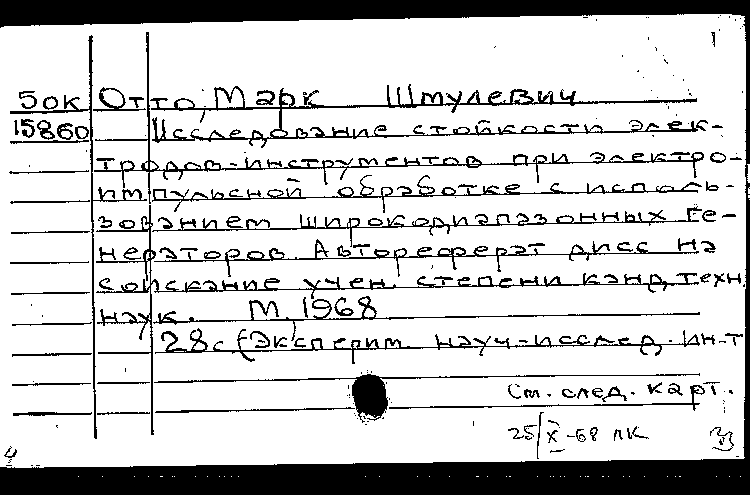 1
50к Отто, Марк Шмулевич
15860 Исследование стойкости элек-
тродов-инструментов при электро-
импульсной обработке с исполь-
зованием широкодиапазонных ге-
нераторов. Автореферат дисс на
соискание учен. степени канд. техн.
наук. М., 1968
28с (Эксперим. науч-исслед. ин-т
См. след. карт.
25/X-68 пк